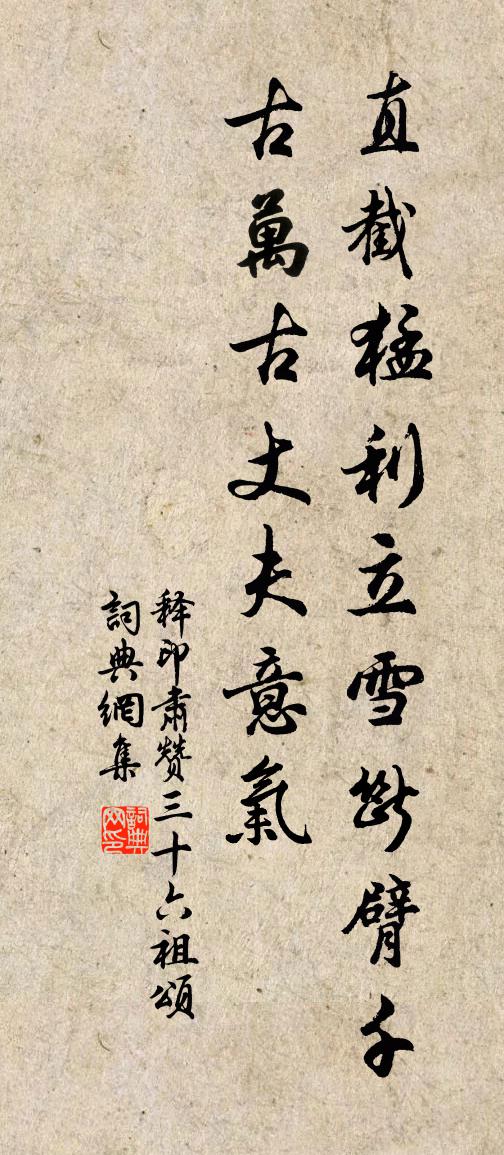 直截猛利立雪斷臂千
古萬古丈夫意氣
释印肅赞三十六祖頌
詞典網集
詞典网印